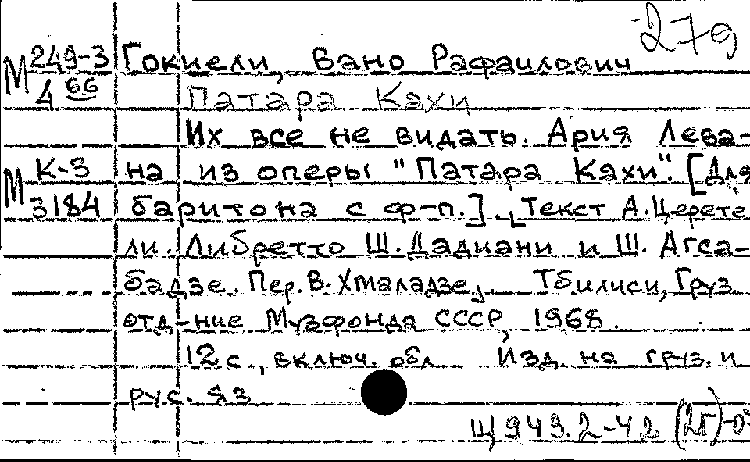 279
М 249-3 Гокиели, Вано Рафаилович
4 66 Патара Кахи
Их все не видать. Ария Лева-
К-3 на из оперы "Патара Кахи". [Для
М 3184 баритона с ф-п.]. Текст А. Церете
ли. Либретто Ш. Дадиани и Ш. Агса-
бадзе. Пер. В. Хмаладзе. Тбилиси, Груз
отд-ние Музфонда СССР, 1968.
12с., включ. обл Изд. на груз. и
рус. яз
Щ943.2-42